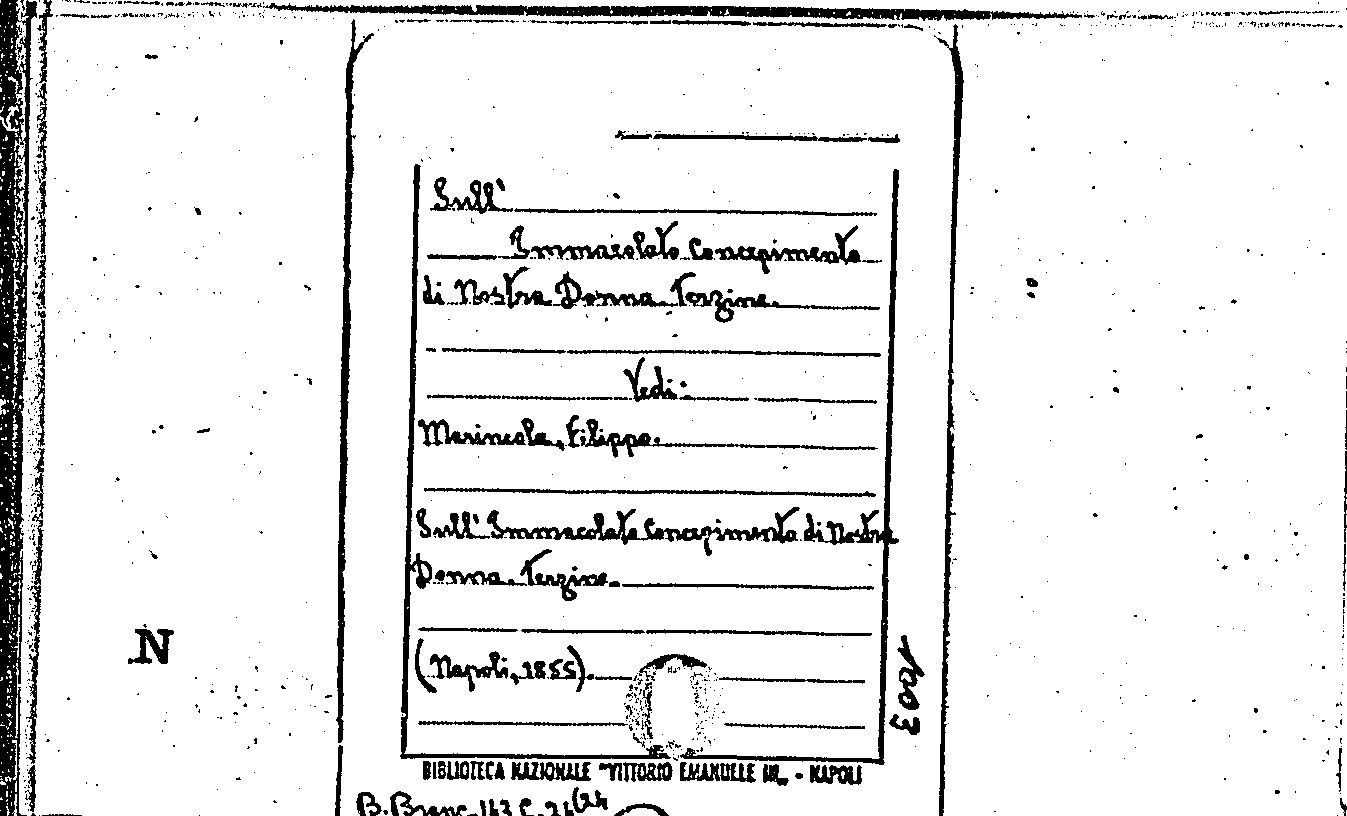 Sull'
Immacolato Concepimento
di Nostra Donna. Terzine.
Vedi:
Marincola, Filippo.
Sull' Immacolato Concepimento di Nostra
Donna. Terzine.
(Napoli, 1855).
1003
BIBLIOTECA NAZIONALE "VITTORIO EMANUELE III" - NAPOLI
B. Branc. 143 C. 24(24
N